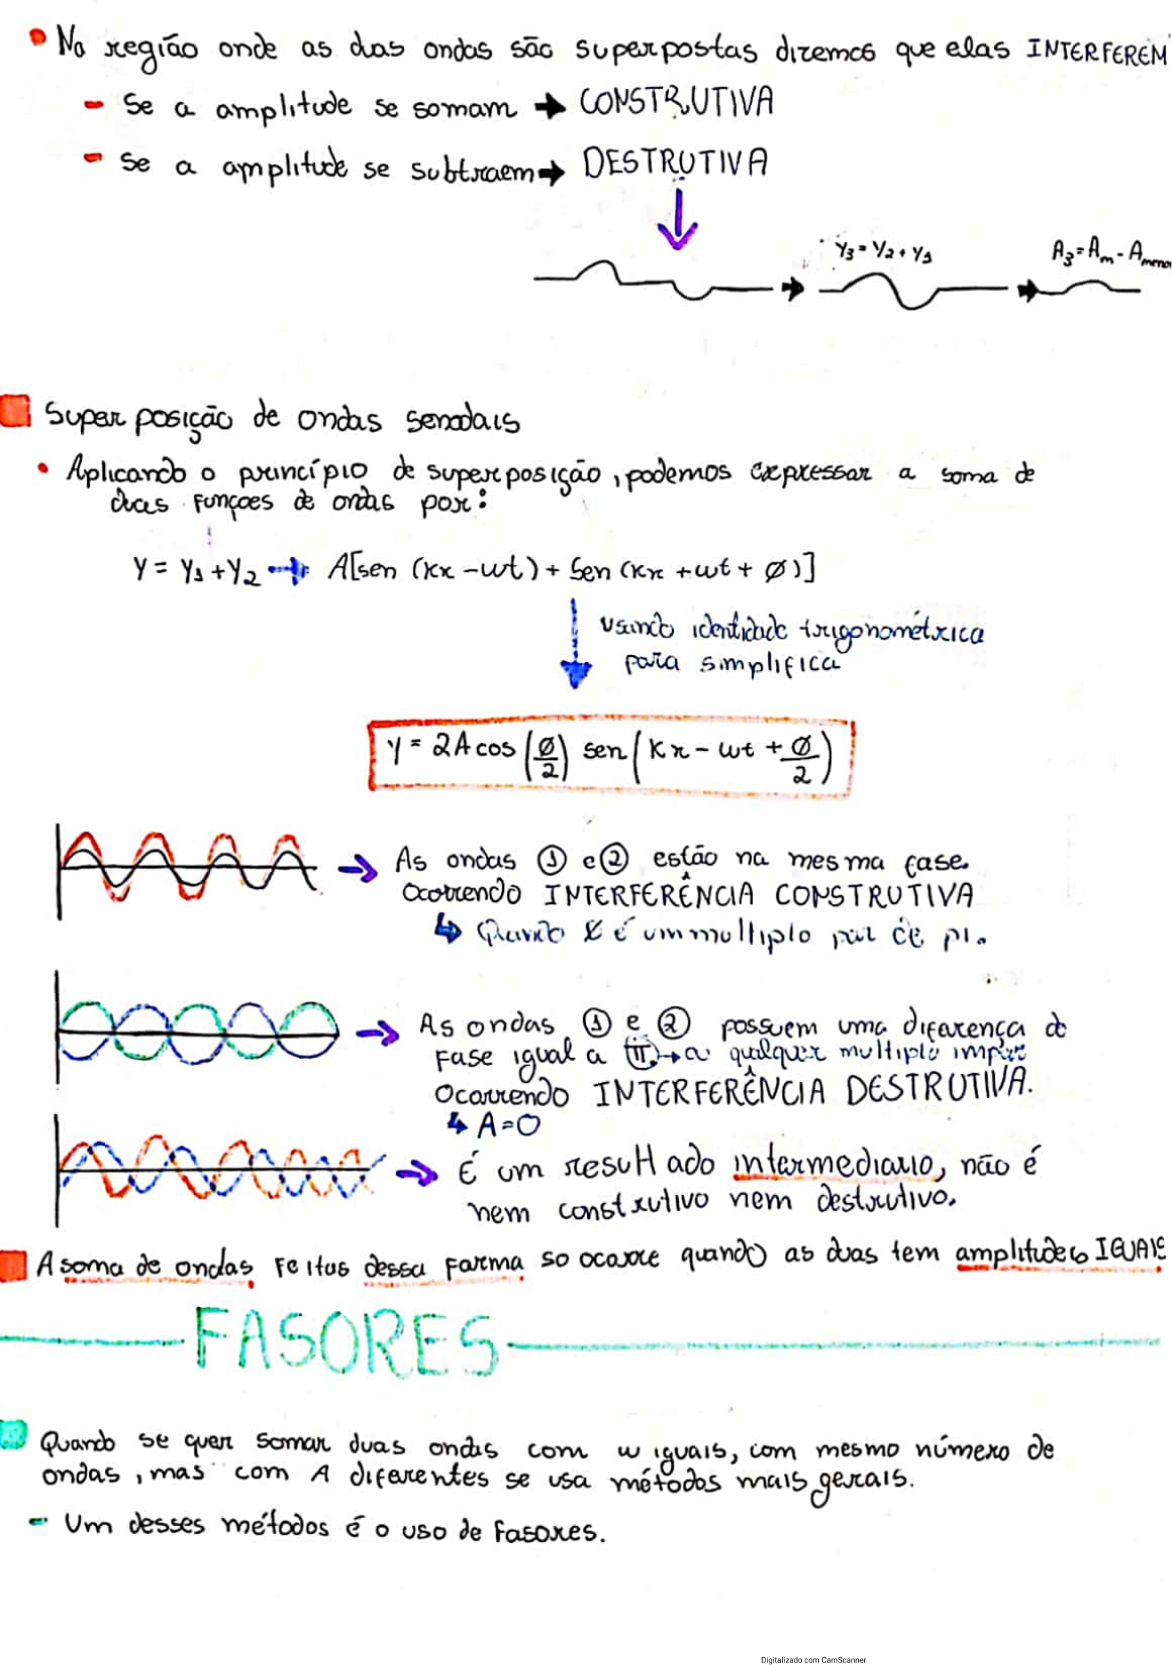 • Na região onde as duas ondas são superpostas dizemos que elas INTERFEREM
- Se a amplitude se somam → CONSTRUTIVA
- Se a amplitude se subtraem → DESTRUTIVA
Y₃ = Y₂ + Y₁
A₃ = Am - Amenor
Superposição de ondas senodais
• Aplicando o princípio de superposição, podemos expressar a soma de
duas funções de ondas por:
Y = Y₁ + Y₂ → A[sen (kx - wt) + Sen (kx + wt + Ø)]
usando identidade trigonométrica
para simplifica
Y = 2A cos (Ø/2) sen (Kx - wt + Ø/2)
→ As ondas ① e ② estão na mesma fase.
Ocorrendo INTERFERÊNCIA CONSTRUTIVA
↳ Quando Ø é um multiplo par de pi.
→ As ondas ① e ② possuem uma diferença de
fase igual a π → a qualquer multiplo impar
Ocorrendo INTERFERÊNCIA DESTRUTIVA.
↳ A=0
→ É um resultado intermediario, não é
nem construtivo nem destrutivo.
A soma de ondas feitas dessa forma so ocorre quando as duas tem amplitudes IGUAIS
FASORES
Quando se quer somar duas ondas com w iguais, com mesmo número de
ondas, mas com A diferentes se usa métodos mais gerais.
- Um desses métodos é o uso de fasores.
Digitalizado com CamScanner